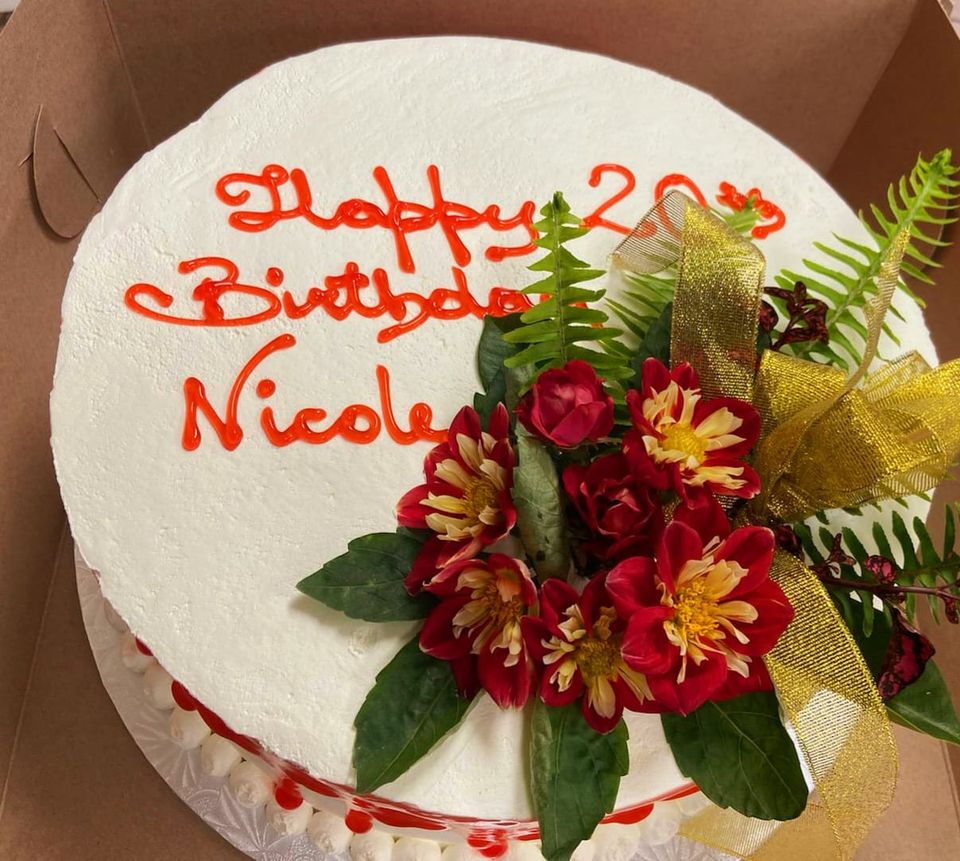 Happy 20th
Birthday
Nicole